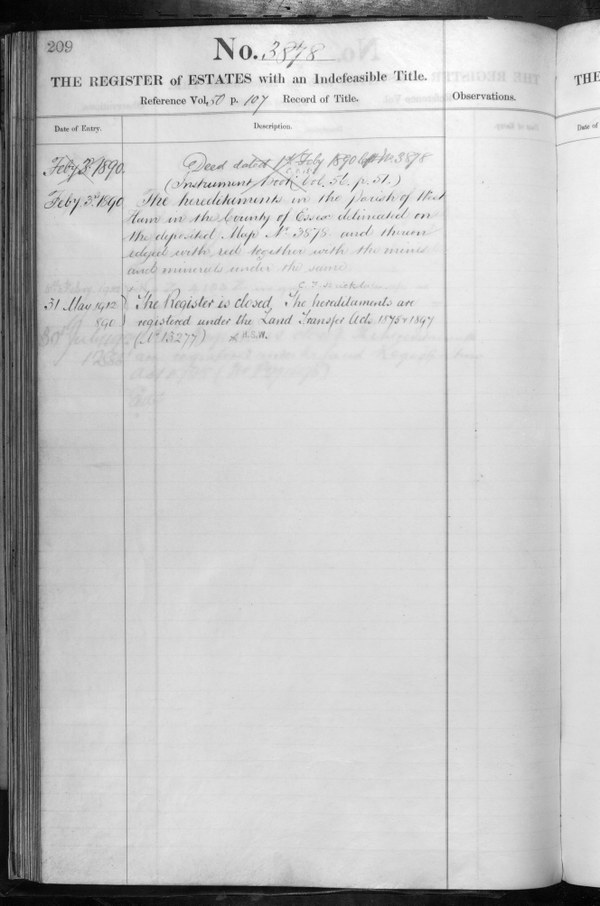 209
No. 3878
THE REGISTER of ESTATES with an Indefeasible Title.
Reference Vol, 50 p. 107 Record of Title.
Observations.
Date of Entry.
Description.
Feby 3d 1890.
Deed dated 1st Feby 1890 3878
(Instrument Book Vol. 56. p. 51.)
Feby 3d 1890
The hereditaments in the parish of West
Ham in the County of Essex delineated on
the deposited Map No. 3878 and thereon
edged with red together with the mines
and minerals under the same
31 May 1912
The Register is closed. The hereditaments are
890
registered under the Land Transfer Acts 1875 & 1897
(No. 13277)
THE
Date of